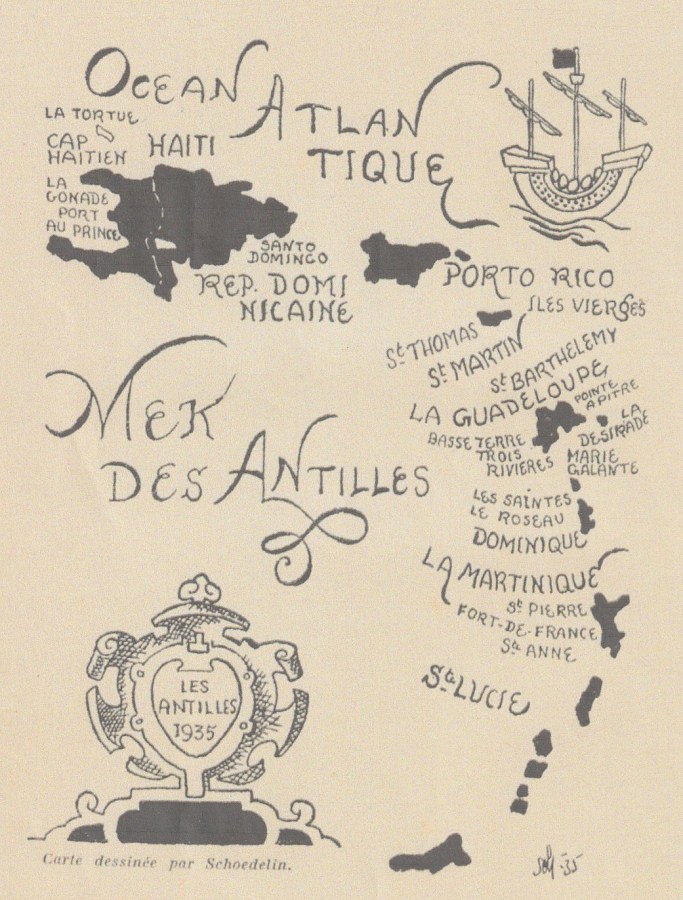 OCEAN ATLAN
TIQUE
LA TORTUE
CAP
HAITIEN
HAITI
LA
GONADE
PORT
AU PRINCE
SANTO
DOMINGO
REP. DOMI
NICAINE
PORTO RICO
ILES VIERGES
St THOMAS
St MARTIN
St BARTHELEMY
LA GUADELOUPE
POINTE
A PITRE
LA
DESIRADE
BASSE TERRE
TROIS
RIVIERES
MARIE
GALANTE
MER
DES ANTILLES
LES SAINTES
LE ROSEAU
DOMINIQUE
LA MARTINIQUE
St PIERRE
FORT-DE-FRANCE
Ste ANNE
Ste LUCIE
LES
ANTILLES
1935
Carte dessinée par Schoedelin.